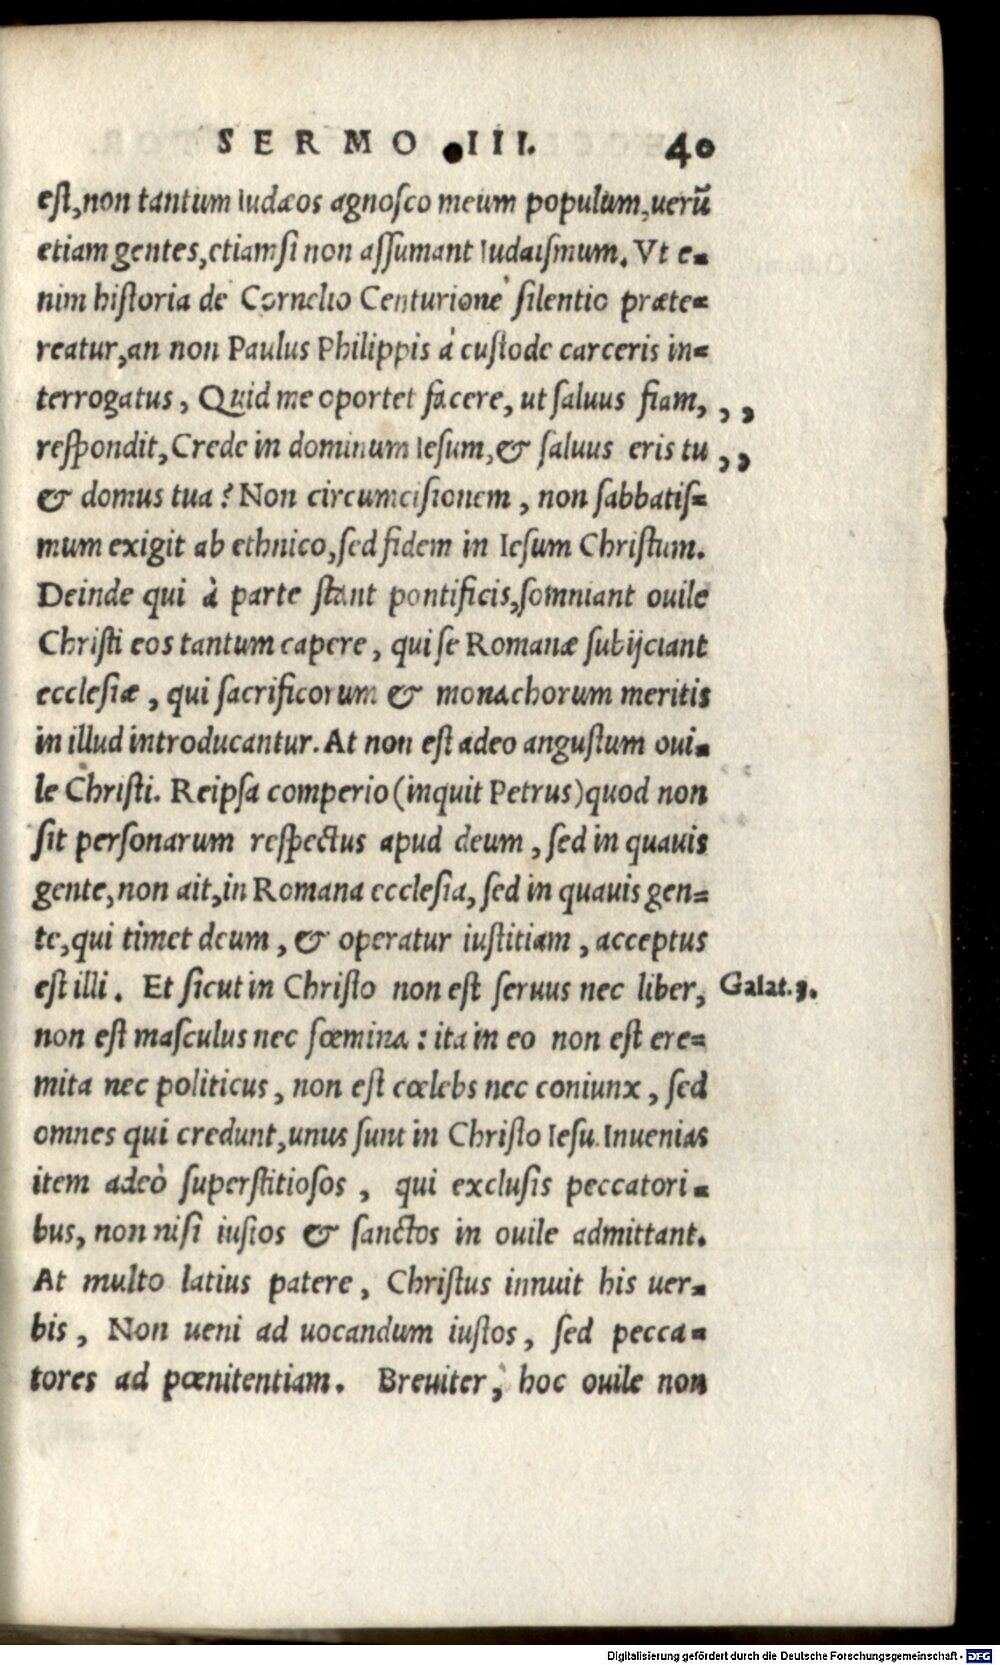 SERMO III. 40
est,non tantum Iudæos agnosco meum populum,uerū
etiam gentes,etiamsi non assumant Iudaismum. Vt e-
nim historia de Cornelio Centurione silentio præte-
reatur,an non Paulus Philippis à custode carceris in-
terrogatus, Quid me oportet facere, ut saluus fiam, ,,
respondit,Crede in dominum Iesum,& saluus eris tu ,,
& domus tua? Non circumcisionem, non sabbatis-
mum exigit ab ethnico,sed fidem in Iesum Christum.
Deinde qui à parte stant pontificis,somniant ouile
Christi eos tantum capere, qui se Romanæ subijciant
ecclesiæ, qui sacrificorum & monachorum meritis
in illud introducantur. At non est adeo angustum oui-
le Christi. Reipsa comperio (inquit Petrus) quod non
sit personarum respectus apud deum, sed in quauis
gente,non ait,in Romana ecclesia, sed in quauis gen-
te,qui timet deum, & operatur iustitiam, acceptus
est illi. Et sicut in Christo non est seruus nec liber, Galat.3.
non est masculus nec fœmina: ita in eo non est ere-
mita nec politicus, non est cœlebs nec coniunx, sed
omnes qui credunt,unus sunt in Christo Iesu. Inuenias
item adeò superstitiosos, qui exclusis peccatori-
bus, non nisi iustos & sanctos in ouile admittant.
At multo latius patere, Christus innuit his uer-
bis, Non ueni ad uocandum iustos, sed pecca-
tores ad pœnitentiam. Breuiter, hoc ouile non
Digitalisierung gefördert durch die Deutsche Forschungsgemeinschaft - DFG